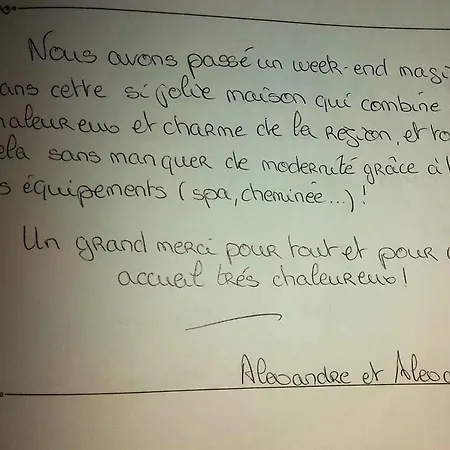 Nous avons passé un week-end magi
ans cette si jolie maison qui combine
haleureux et charme de la région, et to
ela sans manquer de modernité grâce à l
s équipements (spa, cheminée...)!
Un grand merci pour tout et pour
accueil très chaleureux!
Alexandre et Alexa